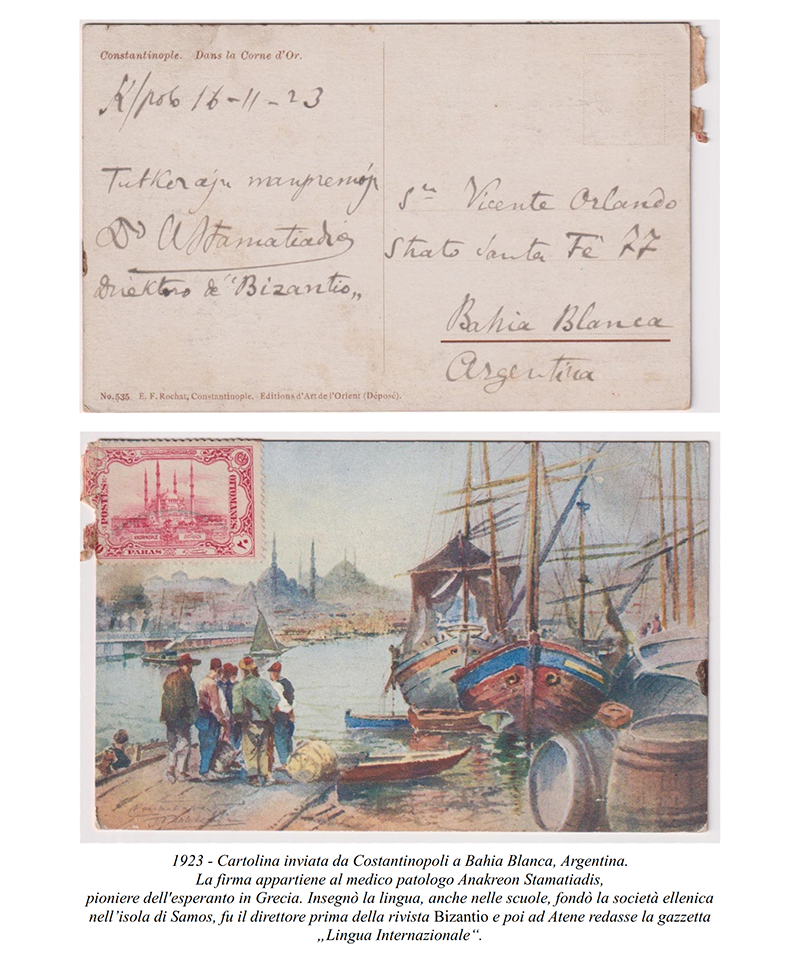 Constantinople. Dans la Corne d'Or.
16-11-23
Tutkorajn manpremojn
Dº AStamatiadis
Direktoro de "Bizantio„
Vicente Orlando
Strato Santa Fé 77
Bahia Blanca
Argentina
No.535 E. F. Rochat, Constantinople. Editions d'Art de l'Orient (Déposé).
POSTES
OTTOMANES
PARAS
1923 - Cartolina inviata da Costantinopoli a Bahia Blanca, Argentina.
La firma appartiene al medico patologo Anakreon Stamatiadis,
pioniere dell'esperanto in Grecia. Insegnò la lingua, anche nelle scuole, fondò la società ellenica
nell’isola di Samos, fu il direttore prima della rivista Bizantio e poi ad Atene redasse la gazzetta
„Lingua Internazionale“.